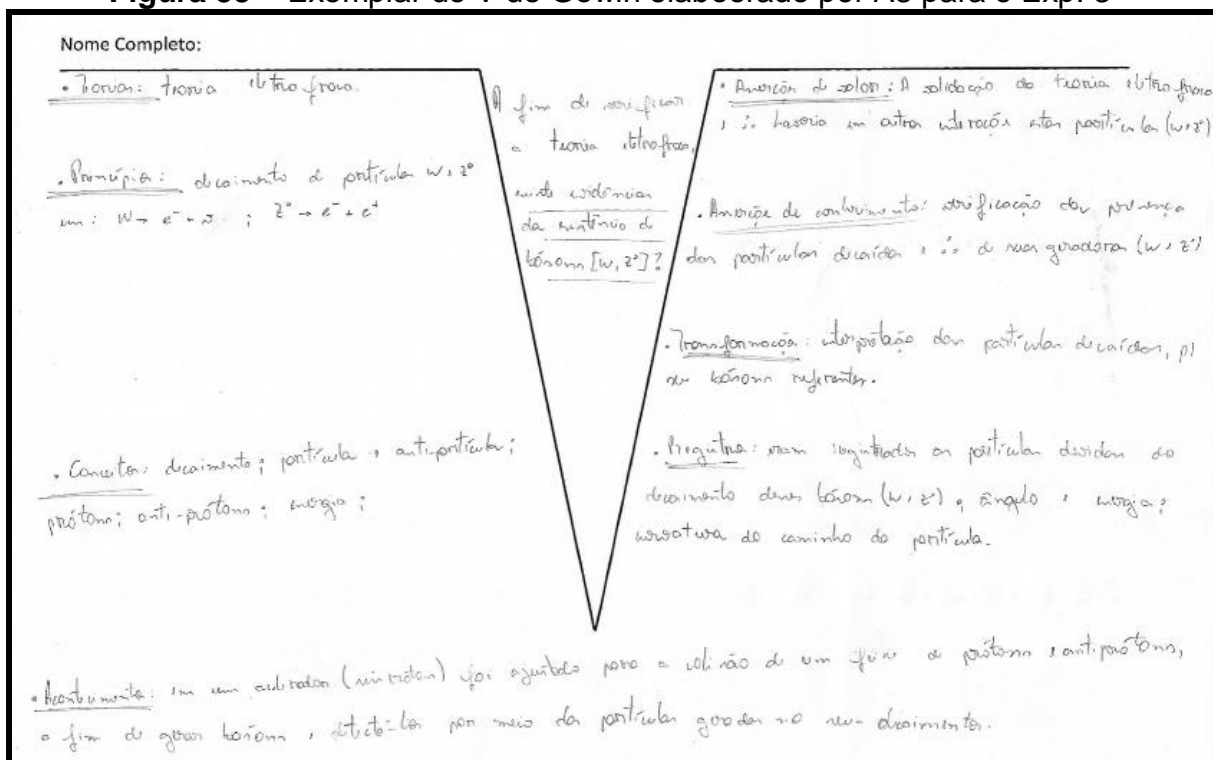 Nome Completo:
• Teorias: teoria eletrofraca.
• Princípios: decaimento de partículas w e z°
em: W → e⁻ + ; z° → e⁻ + e⁺
• Conceitos: decaimento; partícula e antipartícula;
prótons; anti-prótons; energia;
A fim de verificar
a teoria eletrofraca,
existe evidências
da existência de
bósons [w, z°]?
• Asserção de valor: A validação da teoria eletrofraca
, ∴ haveria em outras interações estas partículas (w e z°)
• Asserção de conhecimento: verificação da presença
das partículas decaídas e ∴ de suas geradoras (w e z°)
• Transformações: interpretação das partículas decaídas, p/
bósons referentes.
• Registros: eram registrados as partículas do
decaimento desses bósons (w e z°), ângulo e energia;
curvatura do caminho da partícula.
• Acontecimento: em um acelerador foi ajustado para a colisão de um feixe de prótons e antiprótons,
a fim de gerar bósons e detectá-los por meio das partículas geradas no seus decaimentos.